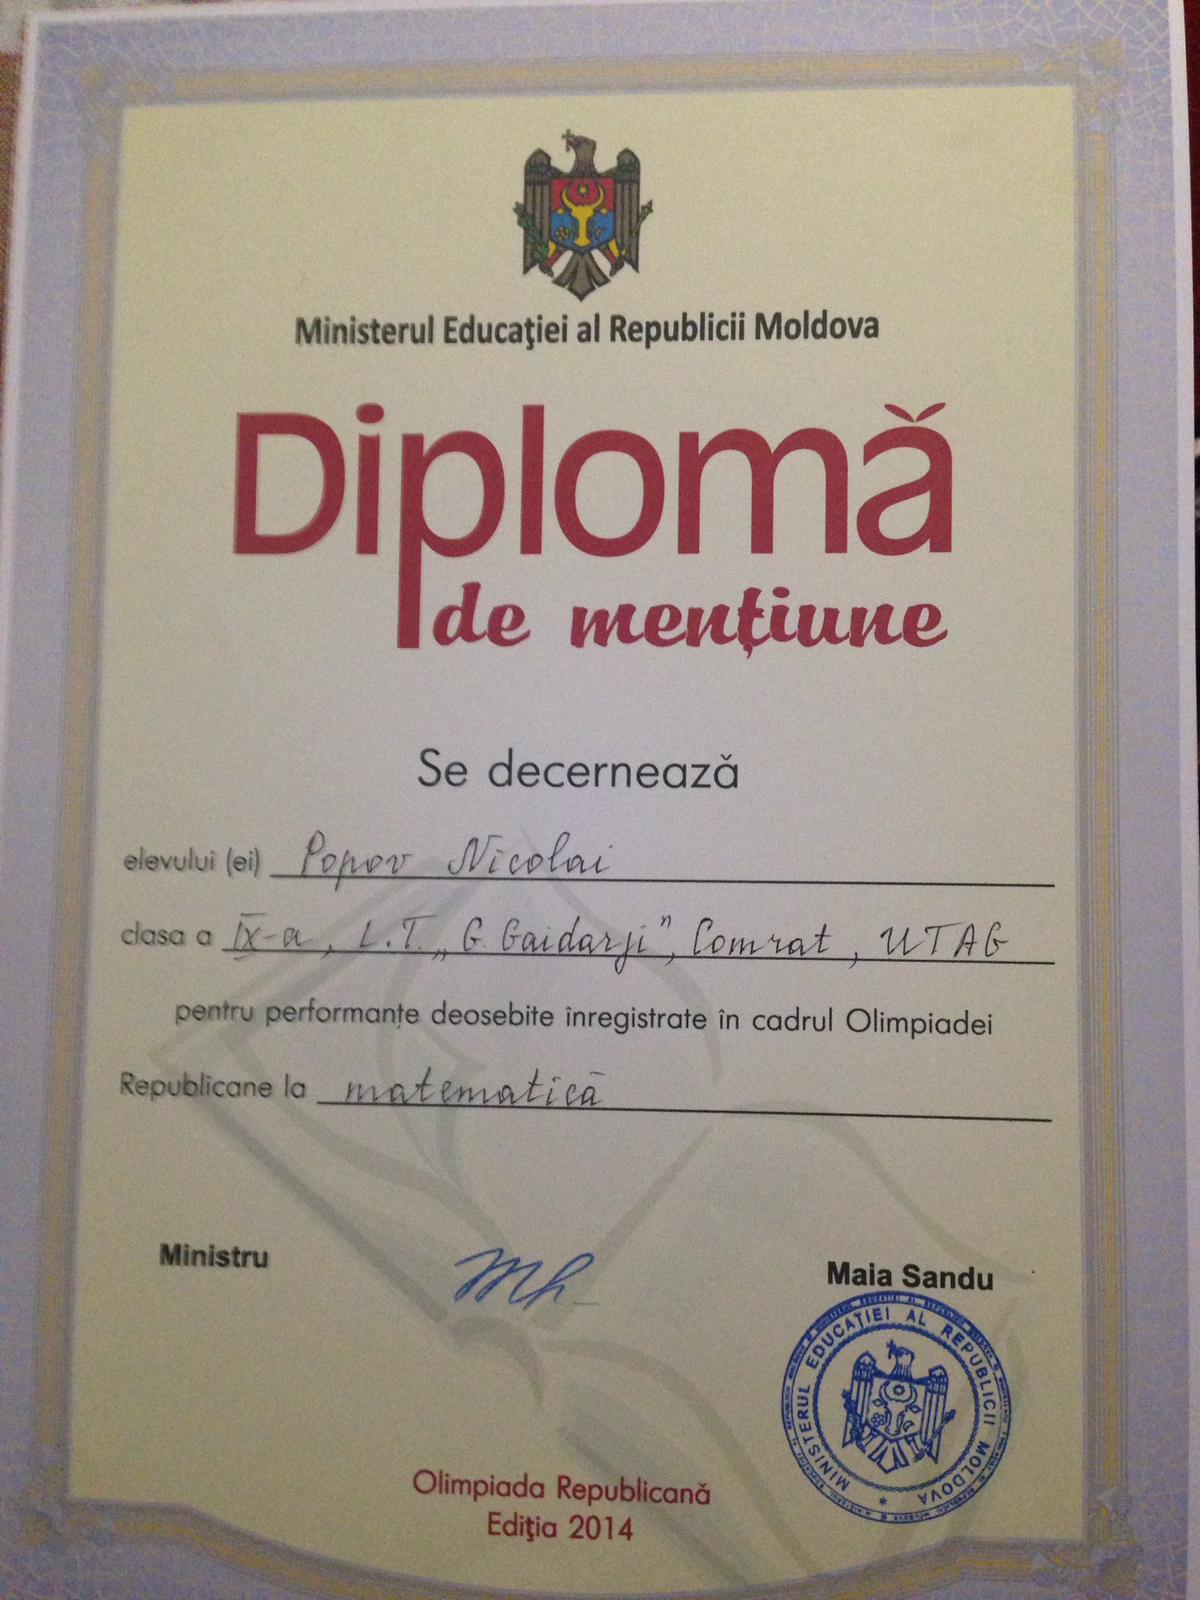 Ministerul Educaţiei al Republicii Moldova
Diplomă
de menţiune
Se decernează
elevului (ei) Popov Nicolai
clasa a IX-a, L.T. „G. Gaidarji”, Comrat, UTAG
pentru performanţe deosebite înregistrate în cadrul Olimpiadei
Republicane la matematică
Ministru
Maia Sandu
MINISTERUL EDUCAŢIEI AL REPUBLICII MOLDOVA *
Olimpiada Republicană
Ediţia 2014